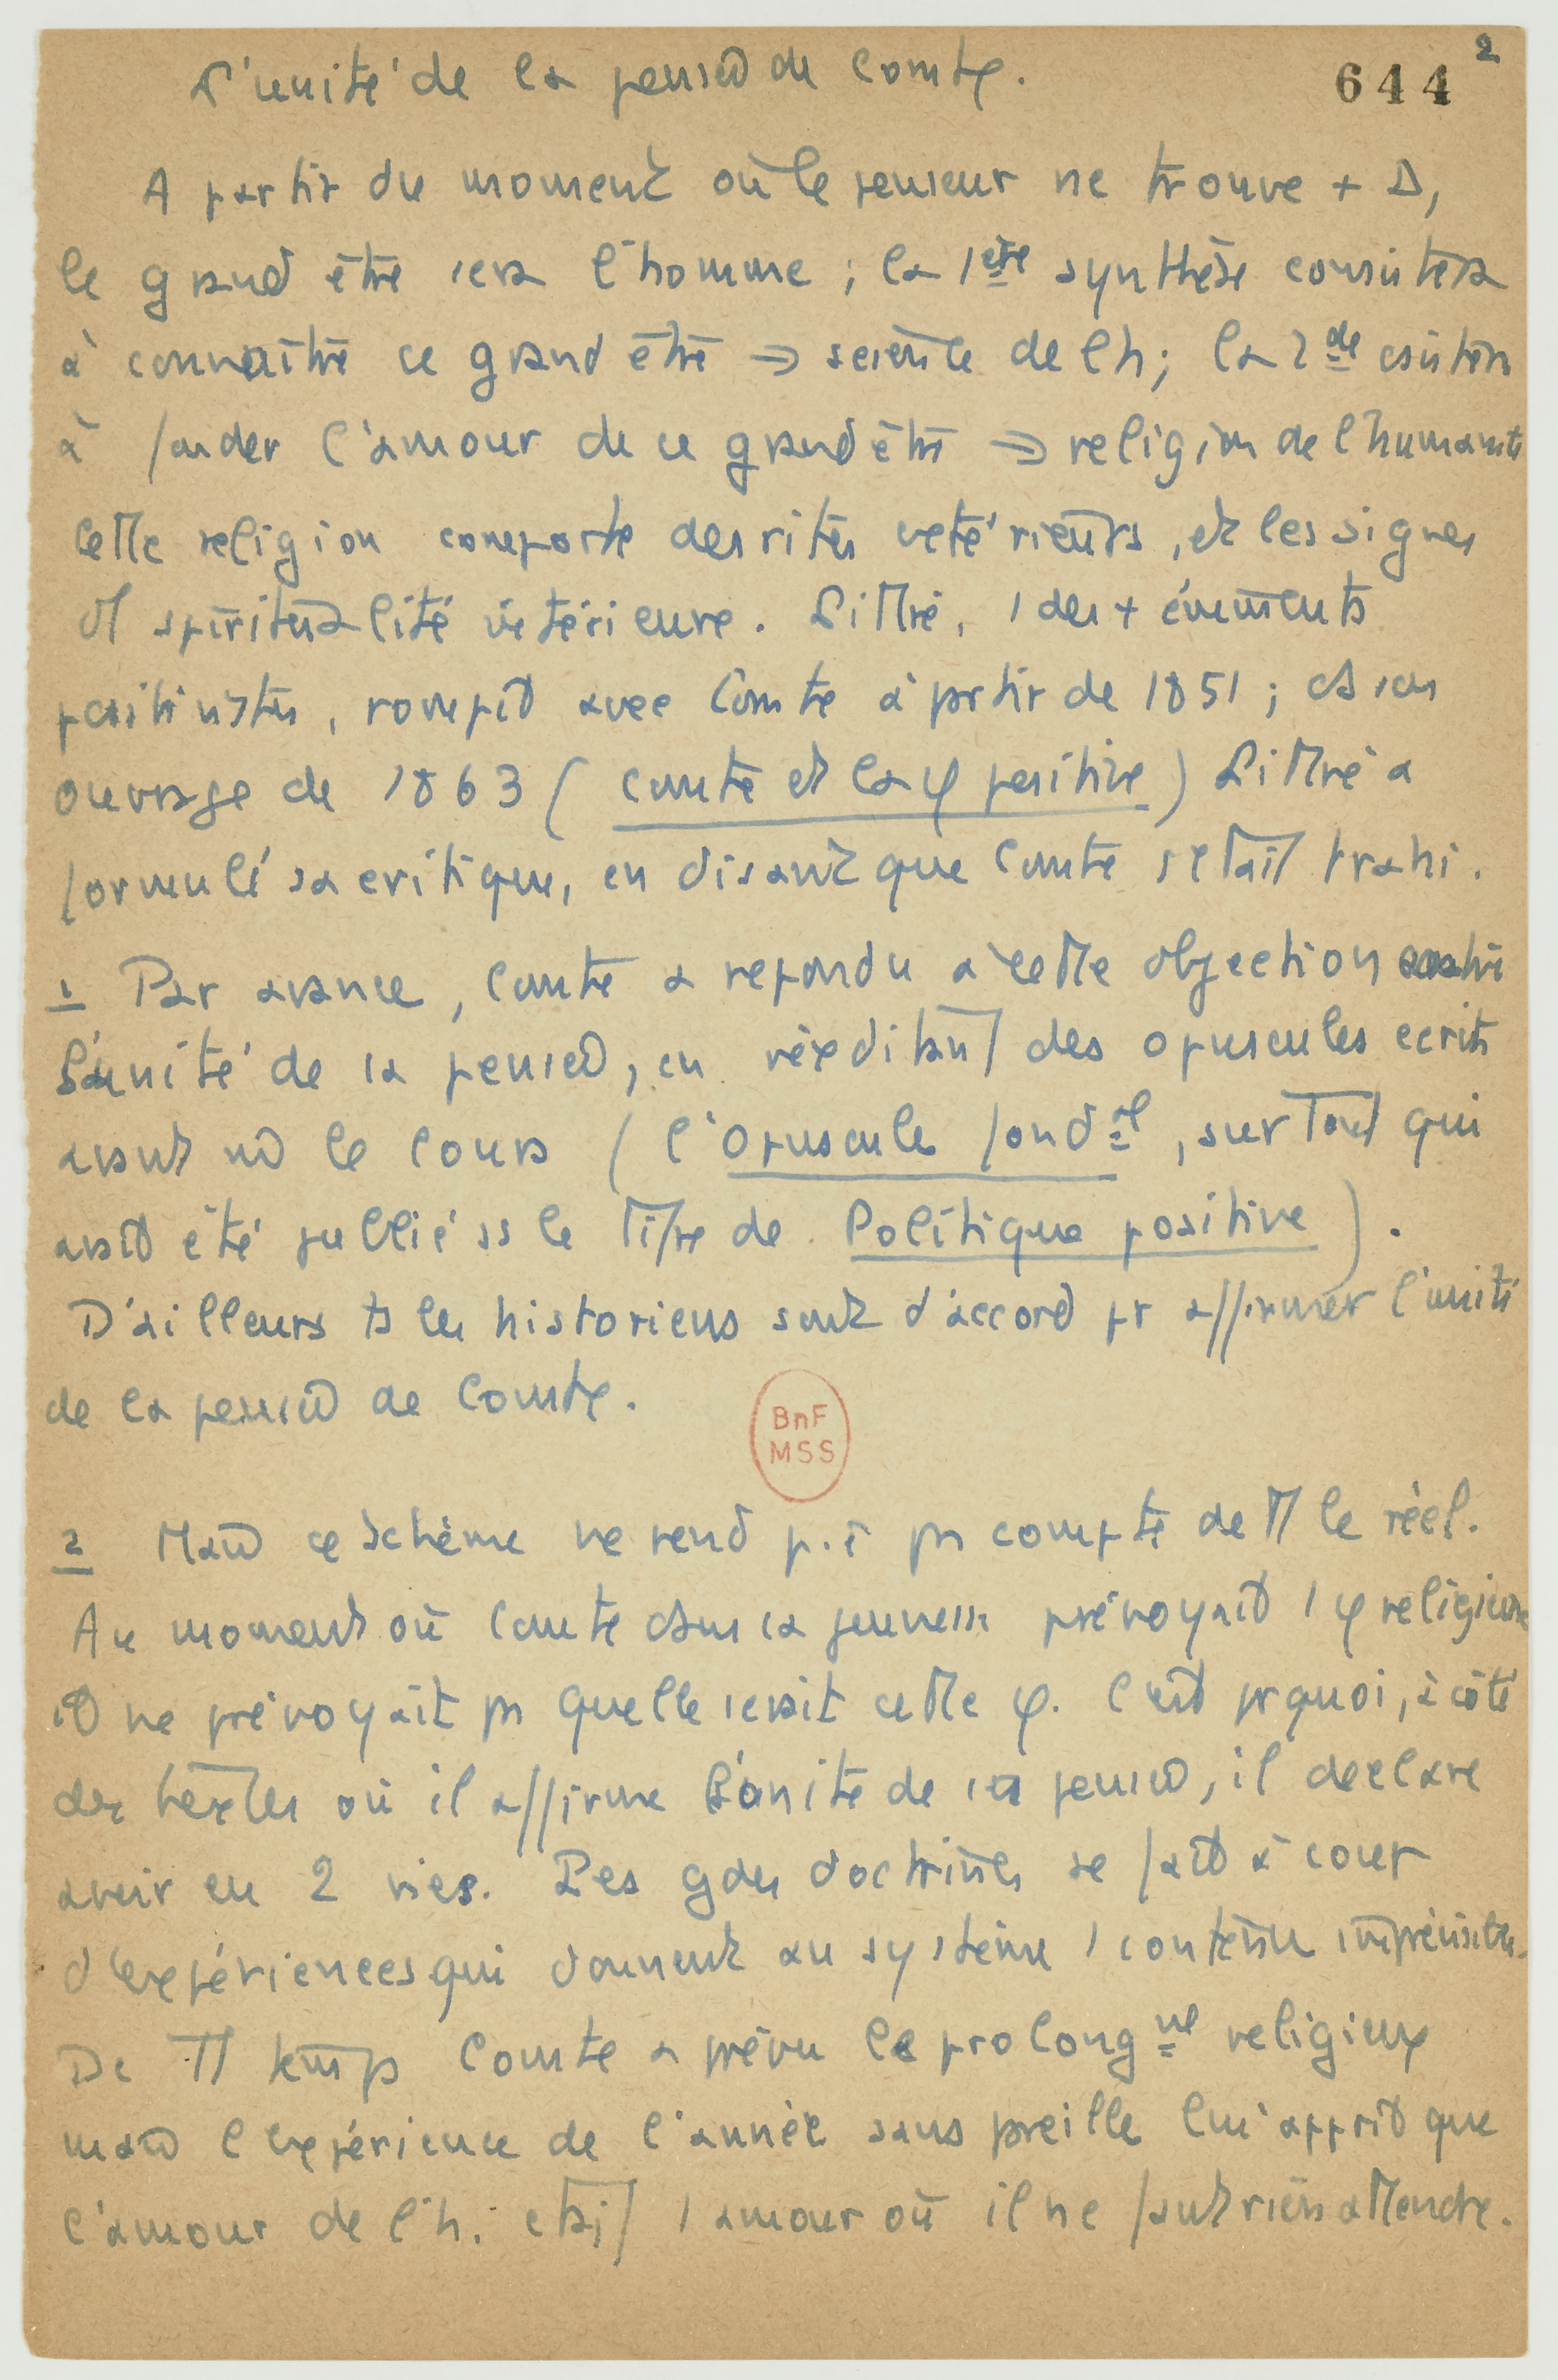 L'unité de la pensée de Comte.
644 2
A partir du moment où le penseur ne trouve + Δ,
le grand être sera l'homme ; la 1ère synthèse consistera
à connaître ce grand être → science de l'h ; la 2de csistera
à fonder l'amour de ce grand être → religion de l'humanité
Cette religion comporte des rites extérieurs, et les signes
d'1 spiritualité intérieure. Littré, 1 des + éminents
positivistes, rompit avec Comte à partir de 1851 ; ds son
ouvrage de 1863 (Comte et la φ positive) Littré a
formulé sa critique, en disant que Comte s'etait trahi.
1 Par avance, Comte a repondu à cette objection contre
l'unité de sa pensée, en rééditant des opuscules ecrits
avant le Cours (l'Opuscule fondal, surtout qui
avait été publié ss le titre de Politique positive).
D'ailleurs ts les historiens sont d'accord pr affirmer l'unité
de la pensée de Comte.
BnF
MSS
2 Mais ce schème ne rend p.ê ps compte de tt le réel.
Au moment où Comte dans sa jeunesse prévoyait 1 φ religieuse
il ne prévoyait ps quelle serait cette φ. C'est prquoi, à côté
des textes où il affirme l'unité de sa pensée, il declare
avoir eu 2 vies. Les gdes doctrines se font à coup
d'expériences qui donnent au système 1 contenu imprévisible.
De tt temps Comte a prévu le prolongnt religieux
mais l'expérience de l'année sans pareille lui apprit que
l'amour de l'h. etait 1 amour où il ne faut rien attendre.